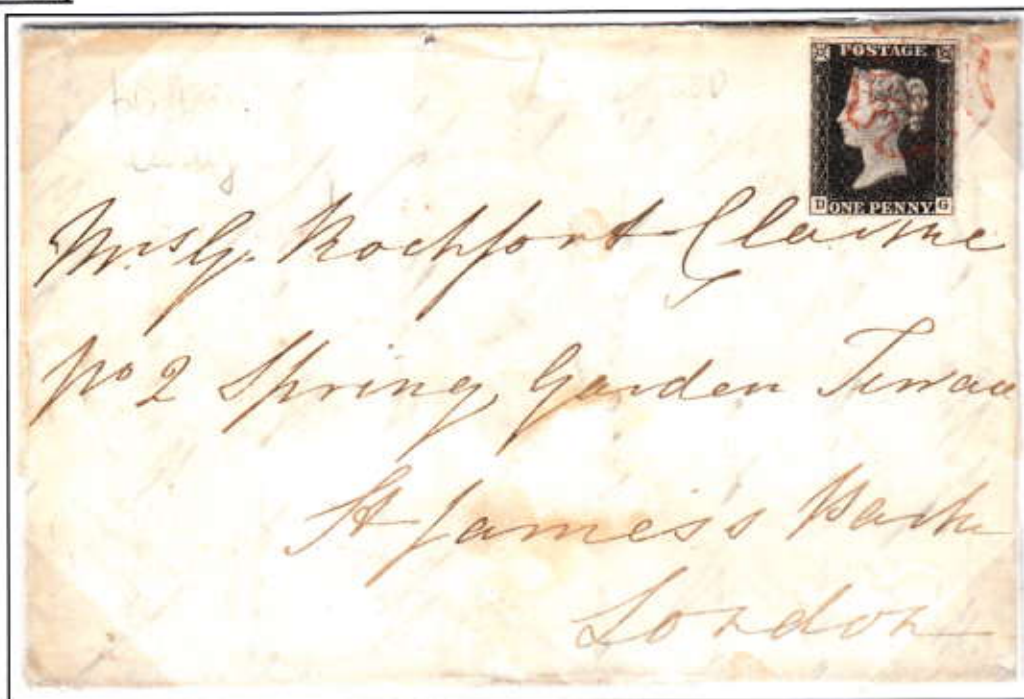 POSTAGE
D ONE PENNY G
Mrs G. Rochfort Clarke
No 2 Spring Garden Terrace
St James's Park
London